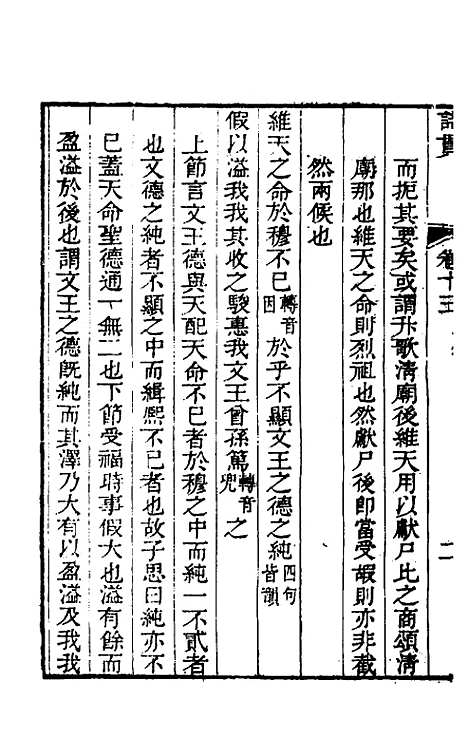 詩貫 卷十三 二
而扼其要矣或謂升歌清廟後維天用以獻尸比之商頌清
廟那也維天之命則烈祖也然獻尸後即當受嘏則亦非截
然兩候也
維天之命於穆不已轉音因於乎不顯文王之德之純四句皆韻
假以溢我我其收之駿惠我文王曾孫篤轉音兜之
上節言文王德與天配天命不已者於穆之中而純一不貳者
也文德之純者不顯之中而緝熙不已者也故子思曰純亦不
已蓋天命聖德通一無二也下節受福時事假大也溢有餘而
盈溢於後也謂文王之德旣純而其澤乃大有以盈溢及我我